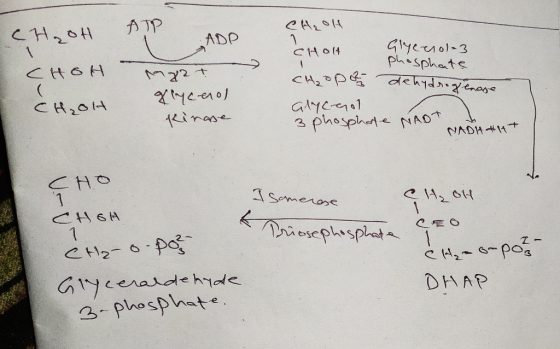 CH2OH
CHOH
CH2OH
ATP
ADP
Mg2+
glycerol
Kinase
CH2OH
CHOH
CH2OPO3 2-
Glycerol
3 phosphate
Glycerol-3
phosphate
dehydrogenase
NAD+
NADH+H+
CH2OH
C=O
CH2-O-PO3 2-
DHAP
Isomerase
Triosephosphate
CHO
CHOH
CH2-O-PO3 2-
Glyceraldehyde
3-phosphate.